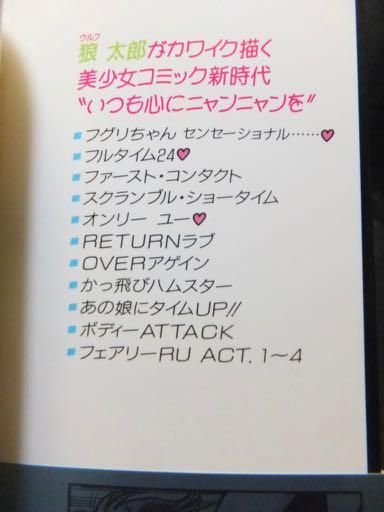 ウルフ
狼 太郎なカワイク描く
美少女コミック新時代
“いつも心にニャンニャンを”
フグリちゃん センセーショナル……♥
フルタイム24♥
ファースト・コンタクト
スクランブル・ショータイム
オンリー ユー♥
RETURNラブ
OVERアゲイン
かっ飛びハムスター
あの娘にタイムUP!!
ボディーATTACK
フェアリーRU ACT.1〜4